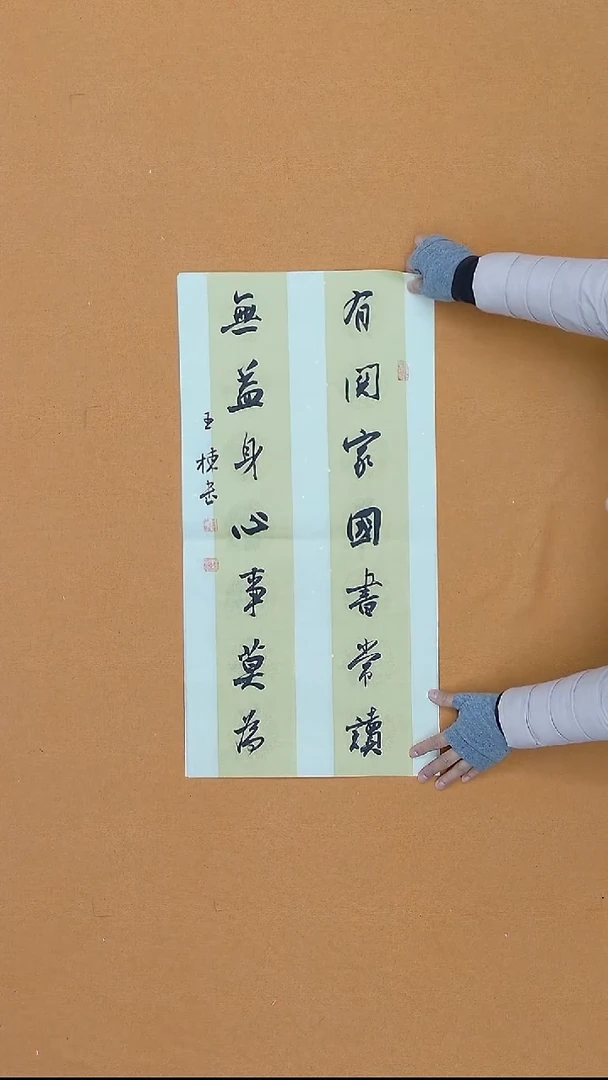 有関家國書常讀
無益身心事莫為
王棟